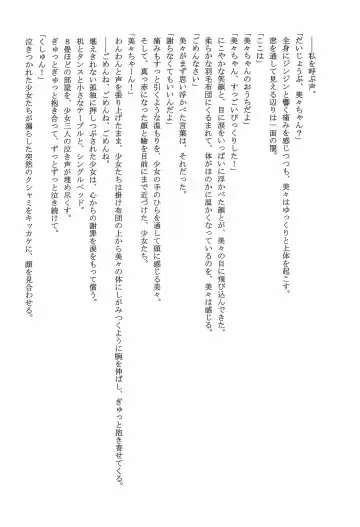 ――私を呼ぶ声。
「だいじょうぶ、美々ちゃん?」
全身にジンジンと響く痛みを感じつつも、美々はゆっくりと上体を起こす。
窓を通して見える辺りは一面の闇。
「ここは」
「美々ちゃんのおうちだよ」
「美々ちゃん、すっごいびっくりした!」
にこやかな笑顔と、目に涙をいっぱいに浮かべた顔とが、美々の目に飛び込んできた。
柔らかな羽毛布団にくるまれて、体がほのかに温かくなっているのを、美々は感じる。
「ごめんなさい」
美々がまず思い浮かべた言葉は、それだった。
「謝らなくてもいいんだよ」
痛みもすっと引くような温もりを、少女の手のひらを通して頭に感じる美々。
そして、真っ赤になった顔と瞼を目前にまで近づけた、少女たち。
「美々ちゃーん!」
わんわんと声を張り上げたまま、少女たちは掛け布団の上から美々の体にしがみつくように腕を伸ばし、ぎゅっと抱き寄せてくる。
「ごめんね、ごめんね、ごめんね」
堪えきれない孤独に押しつぶされた少女は、心からの謝罪を涙をもって償う。
机とタンスと小さなテーブルと、シングルベッド。
8畳ほどの部屋を、少女三人の泣き声が埋め尽くす。
ぎゅっとぎゅっと抱き合って、ずっとずっと泣き続けて。
「くしゅん!」
泣きつかれた少女たちが漏らした突然のクシャミをキッカケに、顔を見合わせる。